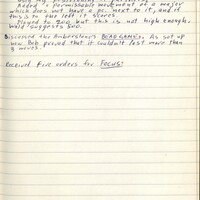 Added a permissible movement of a major
which does not have a pc. next to it, and if
this is to the left it scores.
Played to 200, but this is not high enough.
Wald suggests 500.
Discussed the Amberstone's BOARGAMMON. As set up
now, Bob proved that it couldn't last more than
3 moves.
Received five orders for FOCUS!